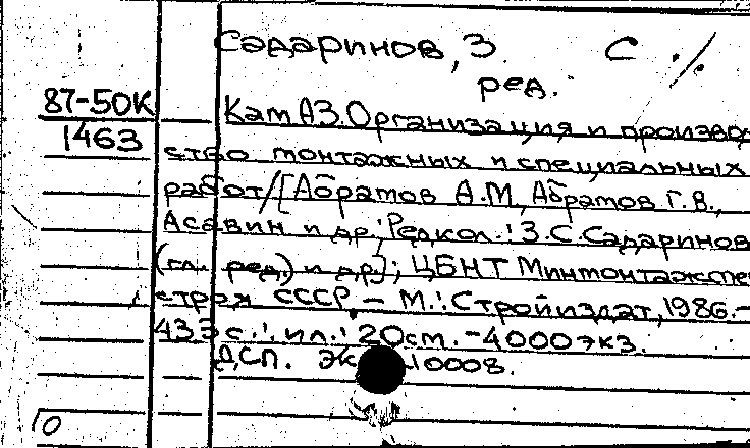 Садаринов, З. С.
ред.
87-50К
1463
КамАЗ. Организация и производ
ство монтажных и специальных
работ/[Абрамов А.М, Абрамов Г.В.,
Асавин и др.; Редкол.: З.С. Садаринов
(гл. ред.) и др.]; ЦБНТ Минмонтажспец
строя СССР. – М.: Стройиздат, 1986.–
433 с.: ил.: 20см. – 4000 экз.
ДСП. Эк 10008.
10